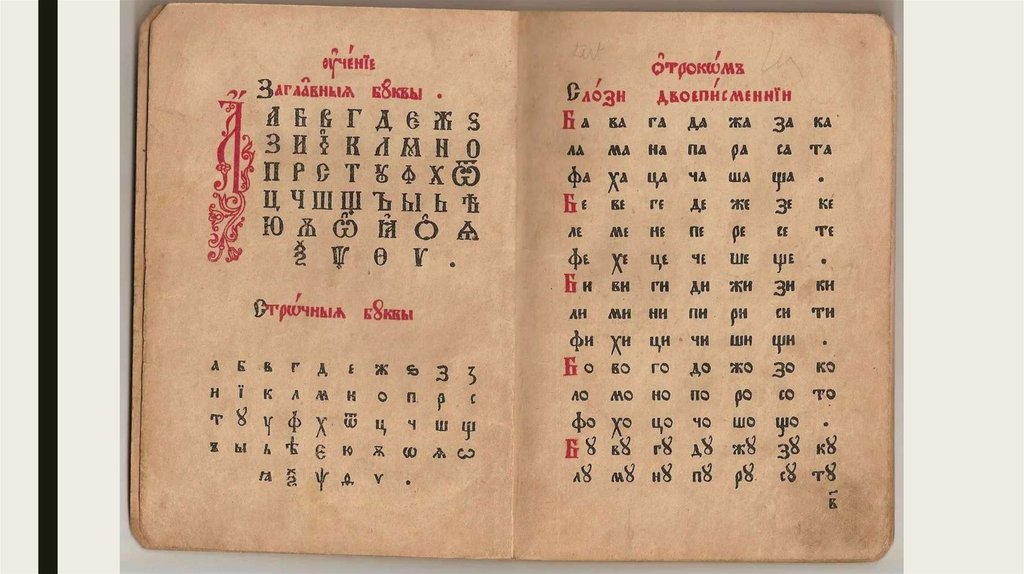 Оу҆че́нїе
Загла̑вныя бꙋквы .
А҆
А Б В Г Д Є Ж Ѕ
З И І К Л М Н О
П Р С Т Ꙋ Ф Х Ѿ
Ц Ч Ш Щ Ъ Ы Ь Ѣ
Ю Ѫ Ѽ Ꙗ Ѻ Ѧ
Ѯ Ѱ Ѳ Ѵ .
Стрѡ́чныя бꙋквы
а б в г д е ж ѕ з ꙁ
и ї к л м н о п р с
т ꙋ у ф х ѿ ц ч ш щ
ъ ы ь ѣ є ю ѫ ѡ ѧ ѡ
ꙗ ѯ ѱ ѳ ѵ .
ѻ҆трокѡ́мъ
Сло́зи двоепи́сменнїи
Ба ва га да жа за ка
ла ма на па ра са та
фа ха ца ча ша ща .
Бе ве ге де же зе ке
ле ме не пе ре се те
фе хе це че ше ще .
Би ви ги ди жи зи ки
ли ми ни пи ри си ти
фи хи ци чи ши щи .
Бо во го до жо зо ко
ло мо но по ро со то
фо хо цо чо шо що .
Бꙋ вꙋ гꙋ дꙋ жꙋ зꙋ кꙋ
лꙋ мꙋ нꙋ пꙋ рꙋ сꙋ тꙋ
в҃